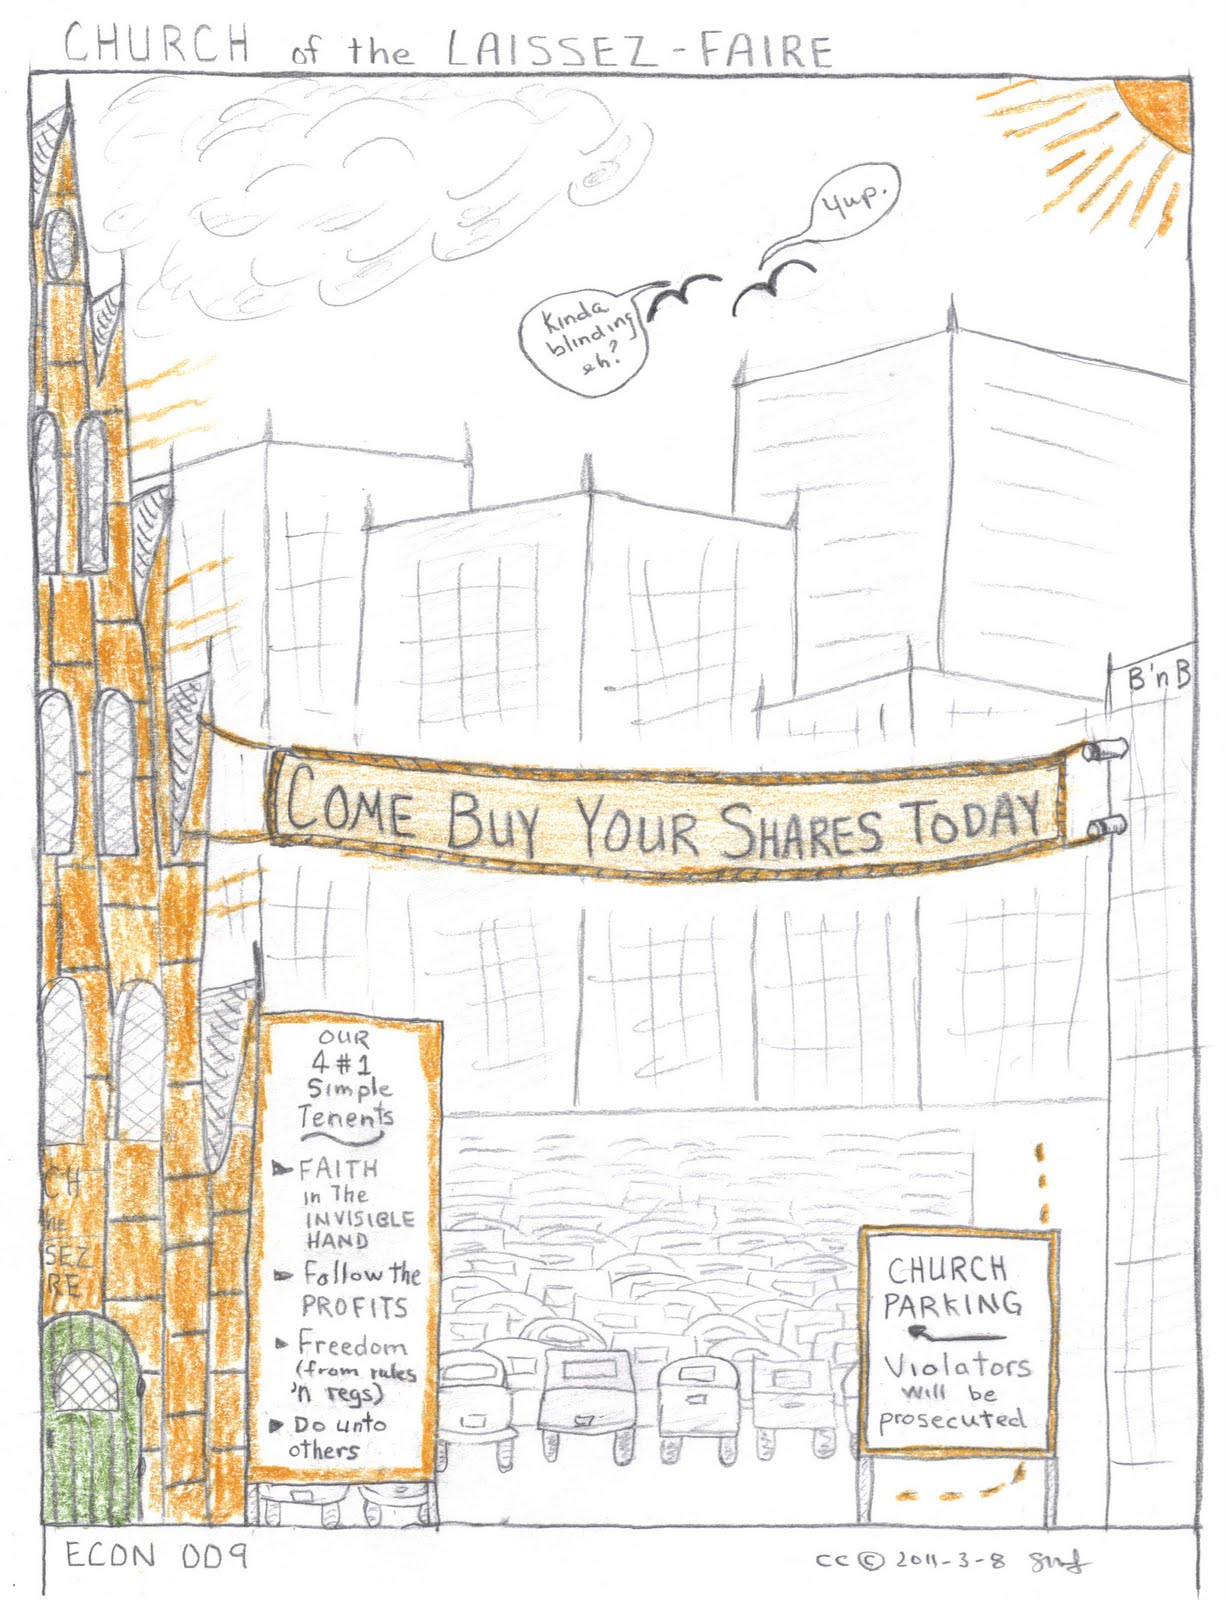 CHURCH of the LAISSEZ-FAIRE
Yup.
Kinda
blinding
eh?
B'nB
COME BUY YOUR SHARES TODAY
OUR
4#1
Simple
Tenents
FAITH
in The
INVISIBLE
HAND
Follow the
PROFITS
Freedom
(from rules
'n regs)
Do unto
others
CH
he
SEZ
RE
CHURCH
PARKING
Violators
will be
prosecuted
ECON 009
CC © 2011-3-8